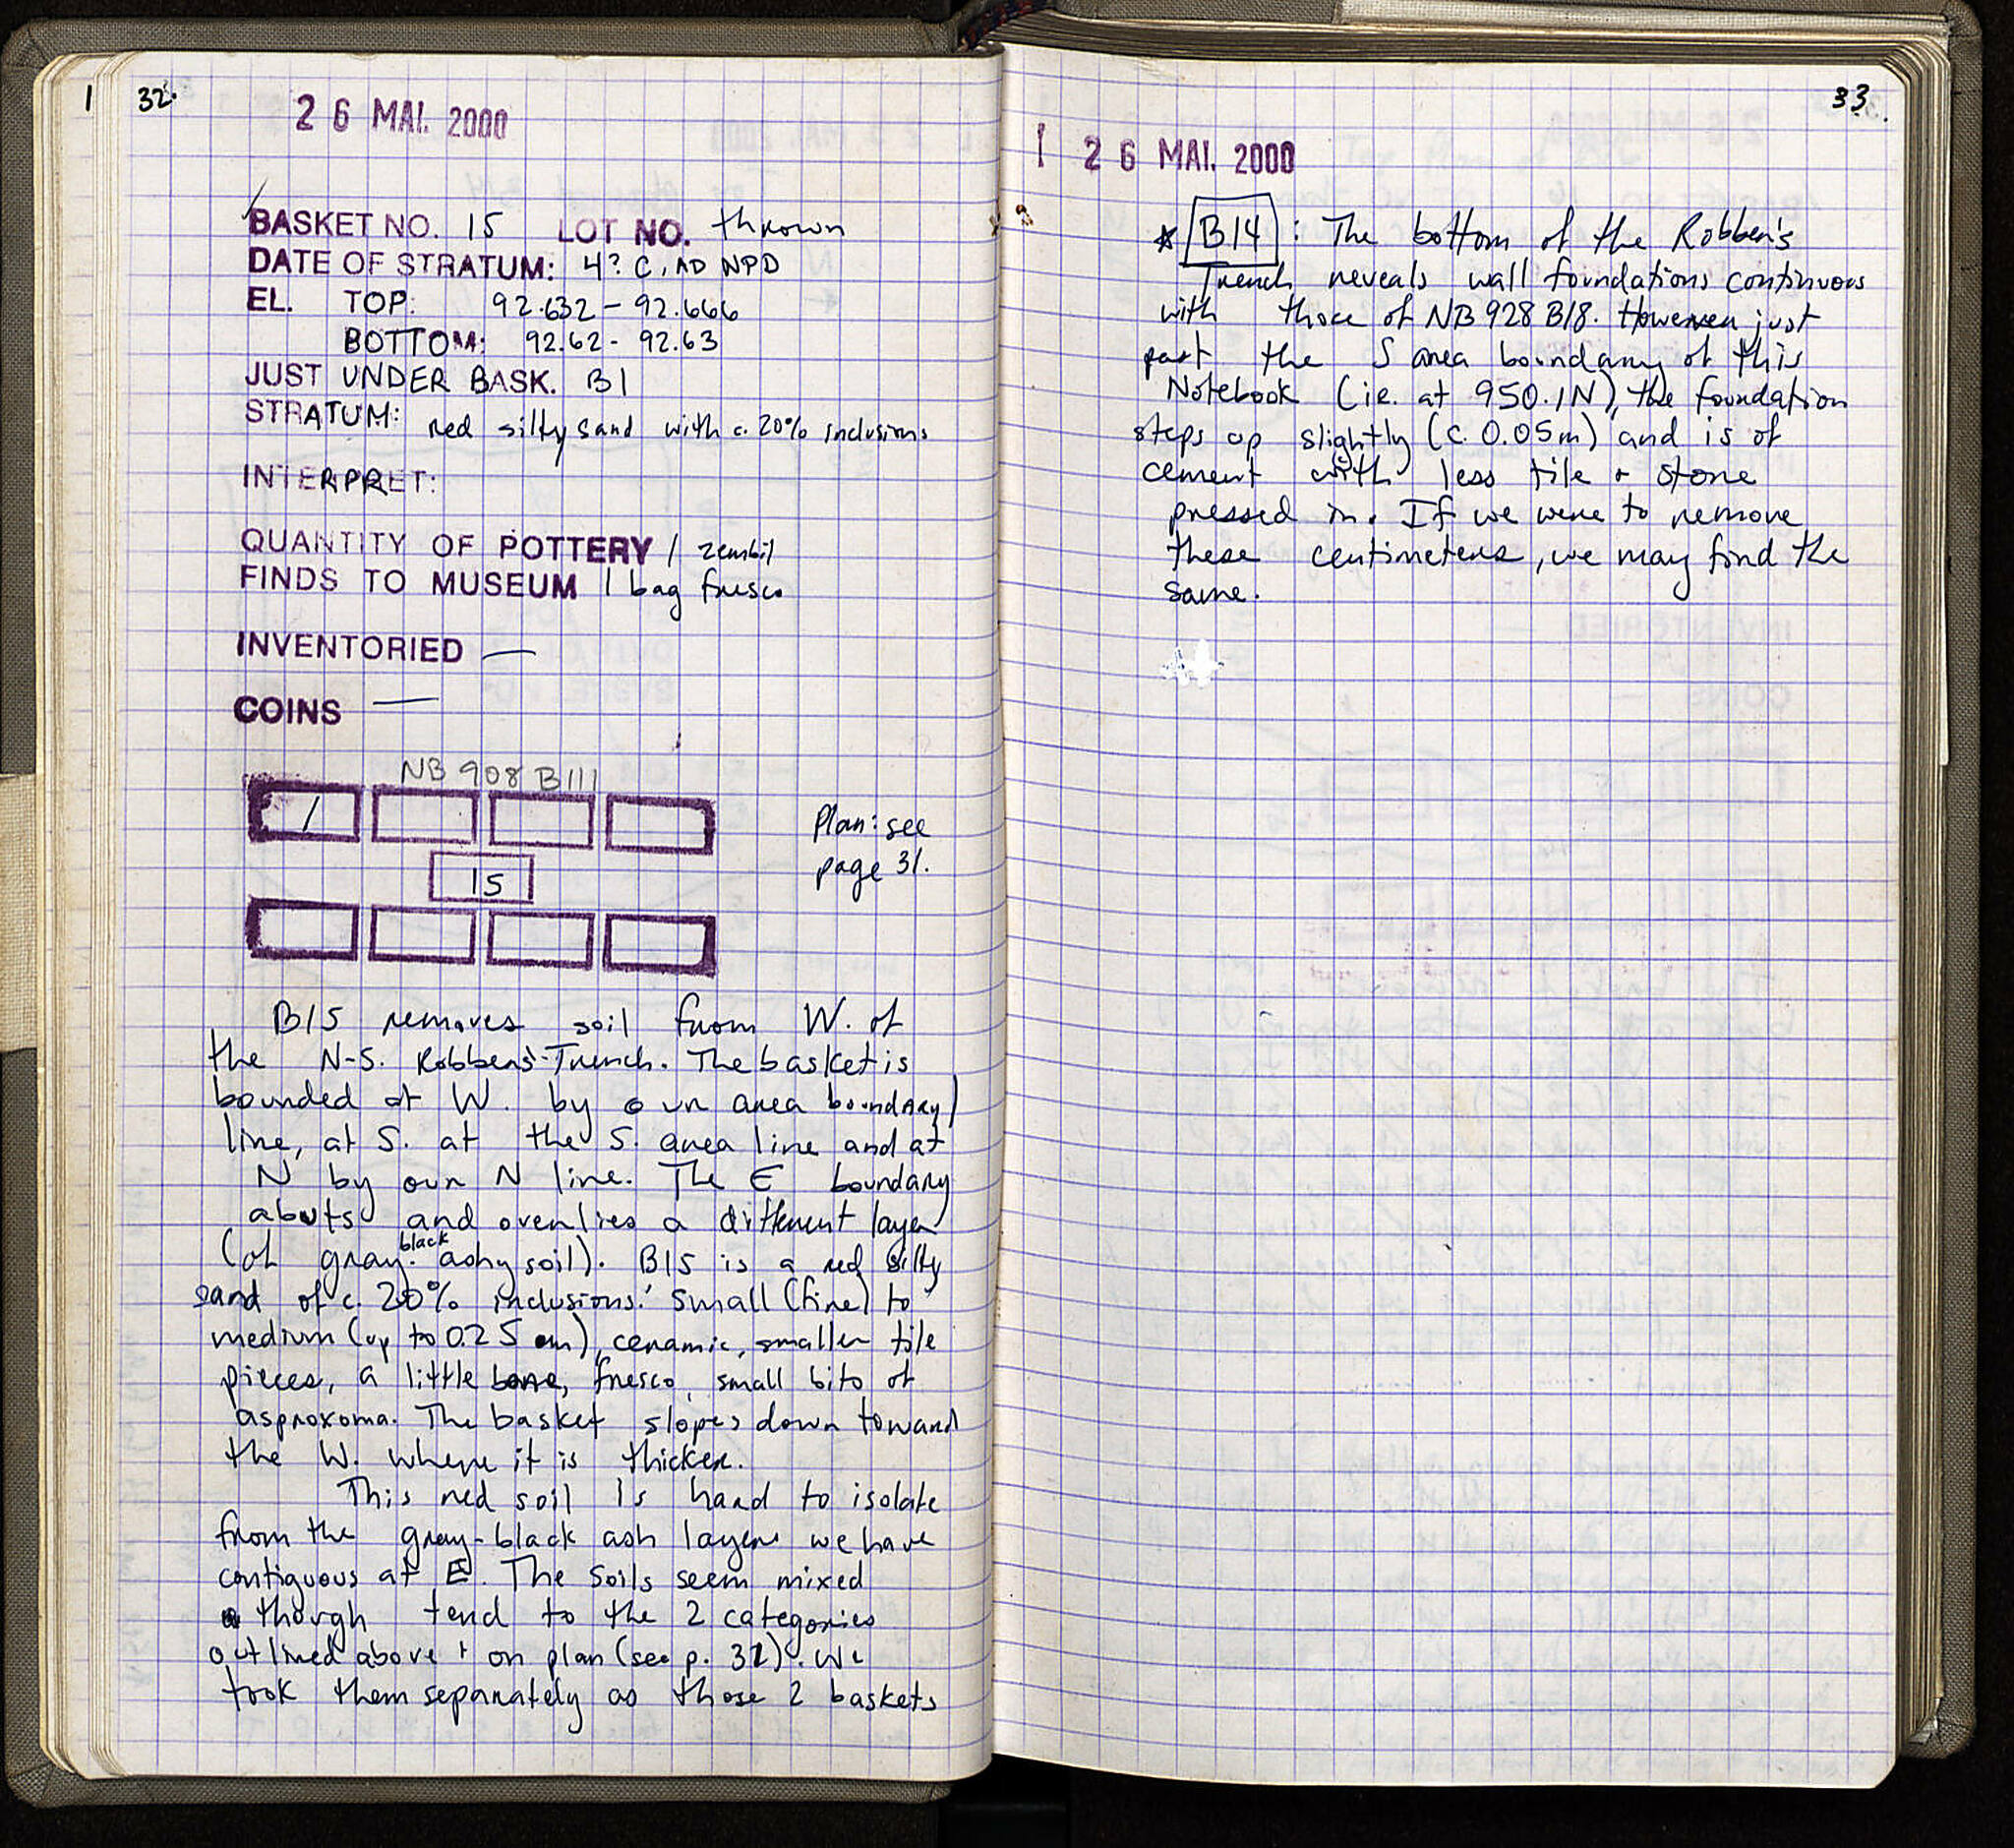 1 32.
26 MAI. 2000
BASKET NO. 15 LOT NO. thrown
DATE OF STRATUM: 4? C. AD NPD
EL. TOP: 92.632 - 92.666
BOTTOM: 92.62 - 92.63
JUST UNDER BASK. B1
STRATUM: red silty sand with c. 20% inclusions
INTERPRET:
QUANTITY OF POTTERY 1 zembil
FINDS TO MUSEUM 1 bag fresco
INVENTORIED —
COINS —
NB 908 B111
1
15
Plan: see
page 31.
B15 removes soil from W. of
the N-S. Robbens' Trench. The basket is
bounded at W. by our area boundary
line, at S. at the S. area line and at
N by our N line. The E boundary
abuts and overlies a different layer
(of gray-black ashy soil). B15 is a red silty
sand of c. 20% inclusions: small (fine) to
medium (up to 0.25 cm), ceramic, smaller tile
pieces, a little bone, fresco, small bits of
asproxoma. The basket slopes down toward
the W. where it is thicker.
This red soil is hard to isolate
from the gray-black ash layer we have
contiguous at E. The soils seem mixed
though tend to the 2 categories
outlined above + on plan (see p. 31). We
took them separately as those 2 baskets
33.
1 26 MAI. 2000
* B14: The bottom of the Robber's
Trench reveals wall foundations continuous
with those of NB 928 B18. However just
past the S area boundary of this
Notebook (ie. at 950.1N), the foundation
steps up slightly (c. 0.05m) and is of
cement with less tile + stone
pressed in. If we were to remove
these centimeters, we may find the
same.